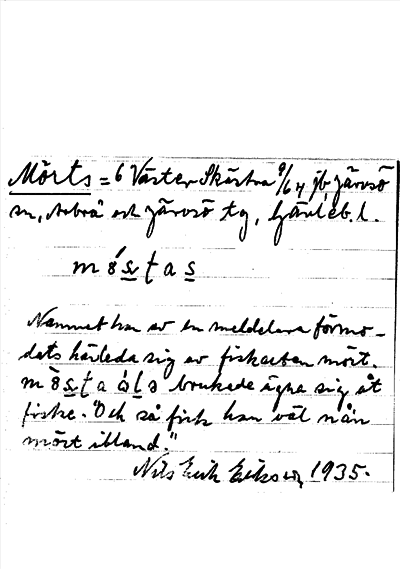 Mörts = 6 Väster Skästra 9/64 jb, Järvsö
sn, Arbrå och Järvsö tg, Gävleb. l.
m ö s t a s
Namnet har av en meddelare förmo-
dats härleda sig av fiskarten mört.
brukade ägna sig åt
fiske. "Och så fick han väl nån
mört ibland."
Nils Erik Eriksson, 1935.